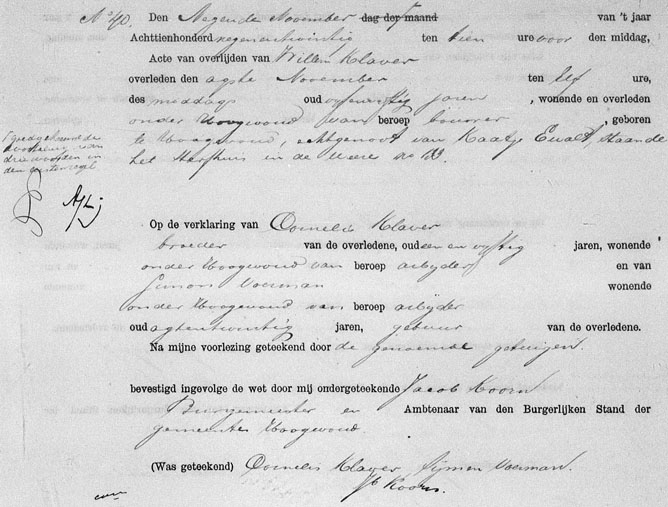 No 40. Den Negende November dag der maand van 't jaar
Achttienhonderd negenentwintig ten tien ure voor den middag,
Acte van overlijden van Willem Klaver
overleden den agste November ten Elf ure,
des middags oud jaren, wonende en overleden
onder Hoogwoud van beroep bouwer, geboren
te Hoogwoud, echtgenoot van Kaatje Ewalt, staande
het Sterfhuis in de Weere no
goedgekeurd de
doorhaling van
drie woorden in
den
Op de verklaring van Cornelis Klaver
broeder van de overledene, oud een en vyftig jaren, wonende
onder Hoogwoud van beroep arbyder en van
Simon Voerman wonende
onder Hoogwoud van beroep arbyder
oud agtentwintig jaren, gebuur van de overledene.
Na mijne voorlezing geteekend door de genoemde getuigen.
bevestigd ingevolge de wet door mij ondergeteekende Jacob Koorn
Burgemeester en Ambtenaar van den Burgerlijken Stand der
gemeente Hoogwoud.
(Was geteekend) Cornelis Klaver Sijmen Voerman.
Jb Koorn.